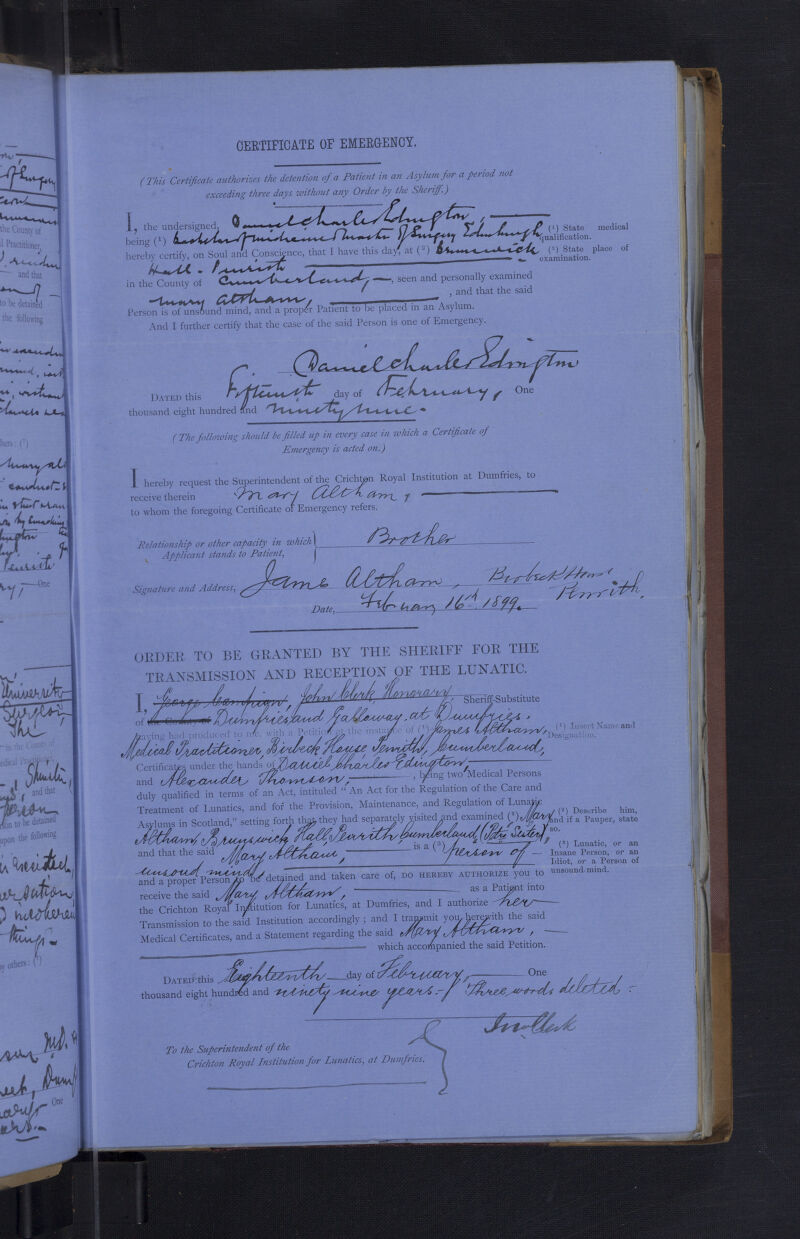 CERTIFICATE OF EMERGENCY.
(This Certificate authorizes the detention of a Patient in an Asylum for a period not
exceeding three days without any Order by the Sheriff.)
I, the undersigned, Daniel Charles Edington,
being (¹) Bachelor of medicine & Master of Surgery Edinburgh
hereby certify, on Soul and Conscience, that I have this day, at (²) Brunswick
Hall - Penrith
in the County of Cumberland, seen and personally examined
Mary Altham, , and that the said
Person is of unsound mind, and a proper Patient to be placed in an Asylum.
And I further certify that the case of the said Person is one of Emergency.
(¹) State medical
qualification.
(²) State place of
examination.
Daniel Charles Edington
DATED this Fifteenth day of February, One
thousand eight hundred and ninety nine.
(The following should be filled up in every case in which a Certificate of
Emergency is acted on.)
I hereby request the Superintendent of the Crichton Royal Institution at Dumfries, to
receive therein Mary Altham,
to whom the foregoing Certificate of Emergency refers.
Relationship or other capacity in which
Applicant stands to Patient, Brother
Signature and Address, James Altham, Birbeck House
Penrith.
Date, February 16th 1899.
ORDER TO BE GRANTED BY THE SHERIFF FOR THE
TRANSMISSION AND RECEPTION OF THE LUNATIC.
I, George Campion, John Clerk Honorary Sheriff-Substitute
of Dumfries and Galloway at Dumfries.
having had produced to me, with a Petition at the instance of (¹) James Altham,
Medical Practitioner, Birbeck House, Penrith, Cumberland,
Certificates under the hands of Daniel Charles Edington,
and Alexander Thomson, , being two Medical Persons
duly qualified in terms of an Act, intituled "An Act for the Regulation of the Care and
Treatment of Lunatics, and for the Provision, Maintenance, and Regulation of Lunatic
Asylums in Scotland," setting forth that they had separately visited and examined (²) Mary
Altham, Brunswick Hall, Penrith Cumberland, (Sister),
and that the said Mary Altham, is a (³) person of
unsoud mind,
and a proper Person to be detained and taken care of, DO HEREBY AUTHORIZE you to
receive the said Mary Altham, as a Patient into
the Crichton Royal Institution for Lunatics, at Dumfries, and I authorize her
Transmission to the said Institution accordingly; and I transmit you herewith the said
Medical Certificates, and a Statement regarding the said Mary Altham,
which accompanied the said Petition.
(¹) Insert Name and
Designation.
(²) Describe him,
and if a Pauper, state
so.
(³) Lunatic, or an
Insane Person, or an
Idiot, or a Person of
unsound mind.
DATED this Eighteenth day of February, One
thousand eight hundred and ninety nine years. Three words deleted.
Jno Clerk
To the Superintendent of the
Crichton Royal Institution for Lunatics, at Dumfries.